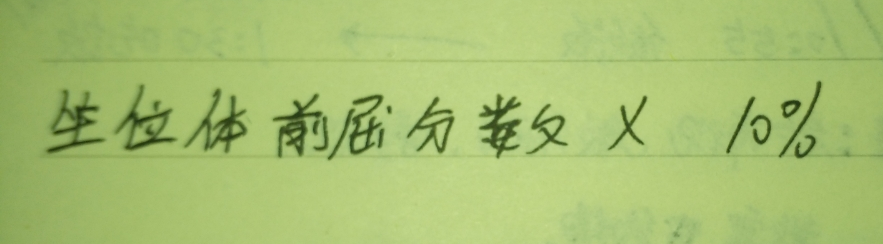 坐位体前屈分数 × 10%